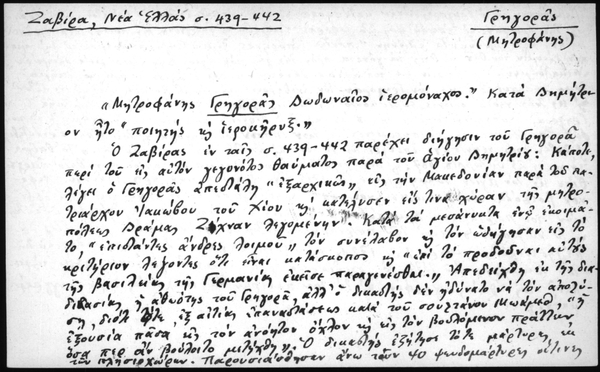 Ζαβίρα, Νέα Ἑλλάς σ. 439-442
Γρηγορᾶς
(Μητροφάνης)
"Μητροφάνης Γρηγορᾶς Δωδωναῖος ἱερομόναχος." Κατὰ Δημήτρι-
ον ἦτο "ποιητὴς κὴ ἱεροκῆρυξ."
Ὁ Ζαβίρας ἐν ταῖς σ. 439-442 παρέχει διήγησιν τοῦ Γρηγορᾶ
περὶ τοῦ εἰς αὐτὸν γεγονότος θαύματος παρὰ τοῦ Ἁγίου Δημητρίου: Κάποτε,
λέγει ὁ Γρηγορᾶς ἀπεστάλη "ἐξαρχικῶς" εἰς τὴν Μακεδονίαν παρὰ τοῦ πα-
τριάρχου Ἰακώβου τοῦ Χίου κὴ κατέλυσεν εἴς τινα χώραν τῆς μητρο-
πόλεως Δράμας Ζίχναν λεγομένην. Κατὰ τὰ μεσάνυκτα ἐνῷ ἐκοιμᾶ-
το, "ἐπιστάντες ἄνδρες λοιμοὶ" τὸν συνέλαβον κὴ τὸν ὡδήγησαν εἰς τὸ
κριτήριον λέγοντες ὅτι εἶναι κατάσκοπος κὴ "ἐπὶ τὸ προδοῦναι αὐτοὺς
τῆς βασιλείας τῆς Γερμανίας ἐκεῖσε παραγενέσθαι." Ἀπεδείχθη ἐκ τῆς δια-
δικασίας ἡ ἀθωότης τοῦ Γρηγορᾶ, ἀλλ' ὁ δικαστὴς δὲν ἠδύνατο νὰ τὸν ἀπολύ-
σῃ, διότι τότε, ἐξ αἰτίας ἐπαναστάσεως κατὰ τοῦ σουλτάνου
ἐξουσία πᾶσα εἰς τὸν ἀνόητον ὄχλον κὴ εἰς τὸν βουλόμενον πράττειν
ὅσα περ ἂν βούλοιτο μετήχθη." Ὁ δικαστὴς ἐζήτησε τότε μάρτυρας ἐκ
τῶν πλησιοχώρων. Παρουσιάσθησαν ἄνω τῶν 40 ψευδομάρτυρες οἵτινες